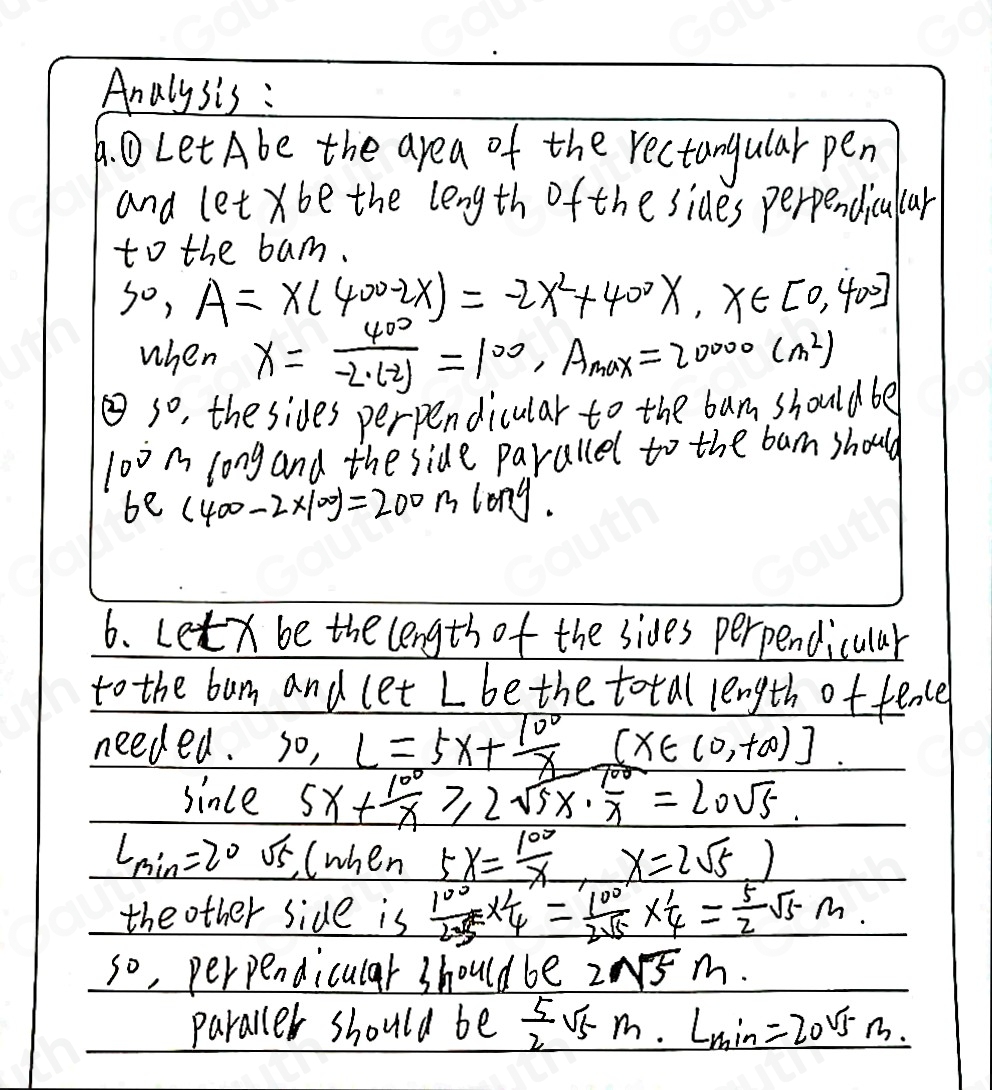 Analysis:
a.① Let A be the area of the rectangular pen
and let X be the length of the sides perpendicular
to the bam.
so, A = X(400-2X) = -2X²+400X, X∈[0,400]
when X = 400/-2·(-2) = 100, Amax = 20000 (m²)
② so, the sides perpendicular to the bam should be
100 m long and the side parallel to the bam should
be (400-2×100)=200 m long.
b. Let X be the length of the sides perpendicular
to the bam and let L be the total length of fence
needed. so, L = 5X+100/X [X∈(0,+∞)].
since 5X+100/X ≥ 2√5X·100/X = 20√5.
Lmin=20√5, (when 5X=100/X, X=2√5)
the other side is 100/2√5 ×1/4 = 100/2√5 ×1/4 = 5/2 √5 m.
so, perpendicular should be 2√5 m.
parallel should be 5/2 √5 m. Lmin=20√5 m.
Gauth